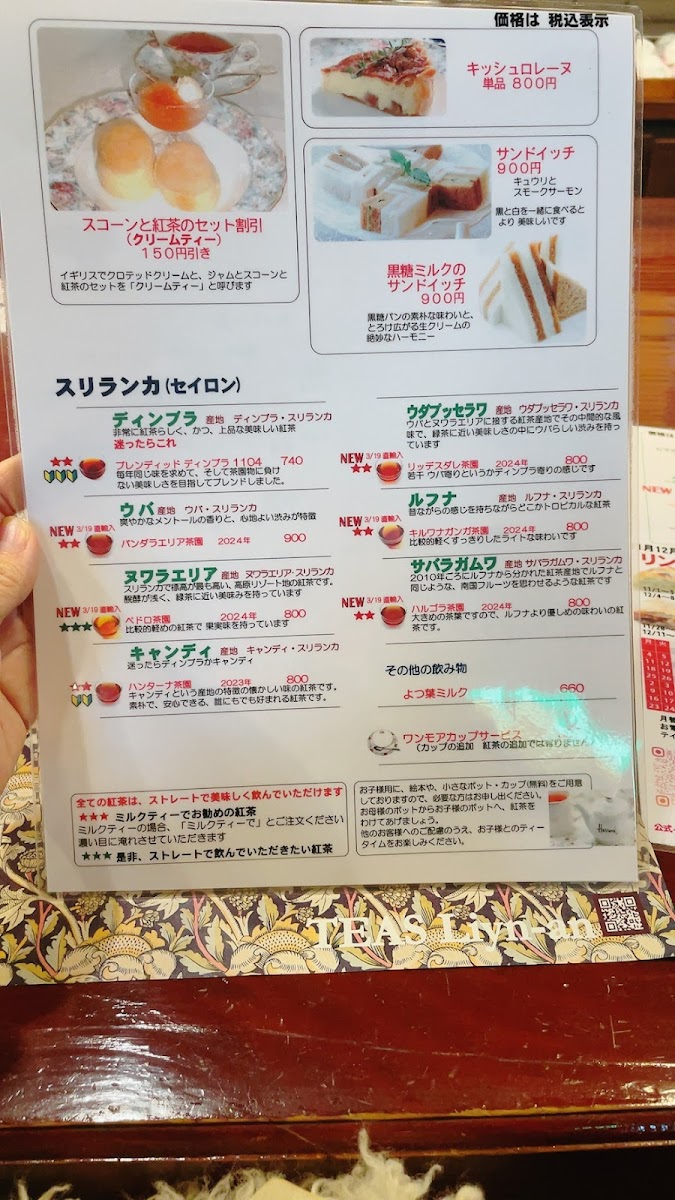 価格は 税込表示
スコーンと紅茶のセット割引
(クリームティー)
150円引き
イギリスでクロテッドクリームと、ジャムとスコーンと
紅茶のセットを「クリームティー」と呼びます
キッシュロレーヌ
単品 800円
サンドイッチ
900円
キュウリと
スモークサーモン
黒と白を一緒に食べると
より 美味しいです
黒糖ミルクの
サンドイッチ
900円
黒糖パンの素朴な味わいと、
とろけ広がる生クリームの
絶妙なハーモニー
スリランカ(セイロン)
ディンブラ 産地 ディンブラ・スリランカ
非常に紅茶らしく、かつ、上品な美味しい紅茶
迷ったらこれ
★★ ブレンディッド ディンブラ 1104 740
毎年同じ味を求めて、そして茶園物に負け
ない美味しさを目指してブレンドしました。
ウバ 産地 ウバ・スリランカ
爽やかなメントールの香りと、心地よい渋みが特徴
NEW 3/19 直輸入
★★ バンダラエリア茶園 2024年 900
ヌワラエリア 産地 ヌワラエリア・スリランカ
スリランカで標高が最も高い、高原リゾート地の紅茶です。
醗酵が浅く、緑茶に近い美味みを持っています
NEW 3/19 直輸入
★★★ ペドロ茶園 2024年 800
比較的軽めの紅茶で 果実味を持っています
キャンディ 産地 キャンディ・スリランカ
迷ったらディンブラかキャンディ
★★ ハンターナ茶園 2023年 800
キャンディという産地の特徴の懐かしい味の紅茶です。
素朴で、安心できる、誰にもでも好まれる紅茶です。
ウダプッセラワ 産地 ウダプッセラワ・スリランカ
ウバとヌワラエリアに接する紅茶産地でその中間的な風
味で、緑茶に近い美味しさの中にウバらしい渋みを持っ
ています
NEW 3/19 直輸入
★★ リッデスダレ茶園 2024年 800
若干 ウバ寄りというかディンブラ寄りの感じです
ルフナ 産地 ルフナ・スリランカ
昔ながらの感じを持ちながらどこかトロピカルな紅茶
NEW 3/19 直輸入
★★ キルワナガンガ茶園 2024年 800
比較的軽くすっきりしたライトな味わいです
サバラガムワ 産地 サバラガムワ・スリランカ
2010年ころにルフナから分かれた紅茶産地でルフナと
同じような、南国フルーツを思わせるような紅茶です
NEW 3/19 直輸入
★★ ハルゴラ茶園 2024年 800
大きめの茶葉ですので、ルフナより優しめの味わいの紅
茶です。
その他の飲み物
よつ葉ミルク 660
ワンモアカップサービス
(カップの追加 紅茶の追加ではありません)
全ての紅茶は、ストレートで美味しく飲んでいただけます
★★★ ミルクティーでお勧めの紅茶
ミルクティーの場合、「ミルクティーで」とご注文ください
濃い目に淹れさせていただきます
★★★ 是非、ストレートで飲んでいただきたい紅茶
お子様用に、絵本や、小さなポット・カップ(無料)をご用意
しておりますので、必要な方はお申し出ください。
お母様のポットからお子様のポットへ、紅茶を
わけてあげましょう。
他のお客様へのご配慮のうえ、お子様とのティー
タイムをお楽しみください。
TEAS Liyn-an
NEW
公式